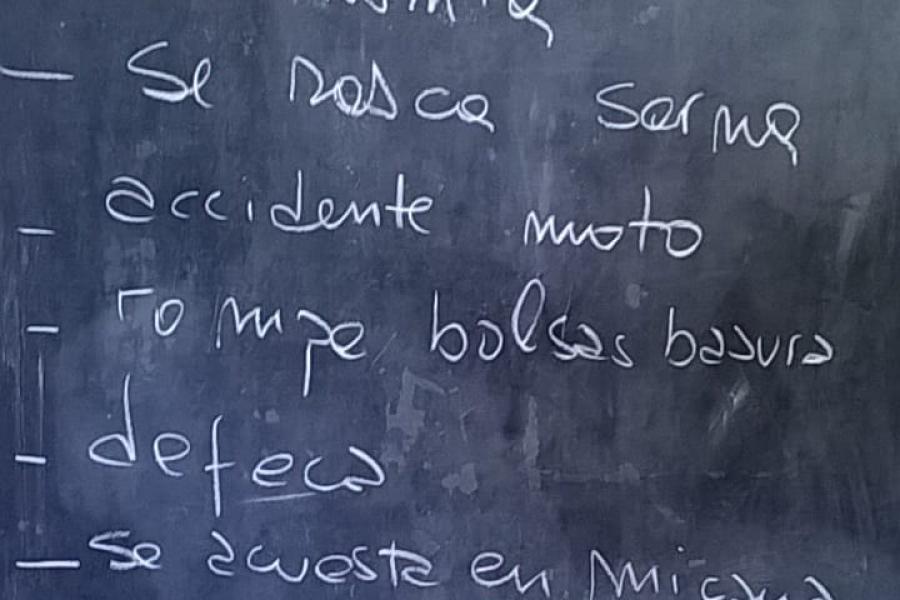 - Se rasca sarna
- accidente moto
- rompe bolsas basura
- defeca
- se acuesta en mi cama